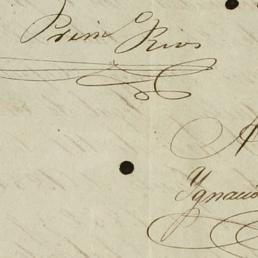 Prim Rios
A
Ygnacio